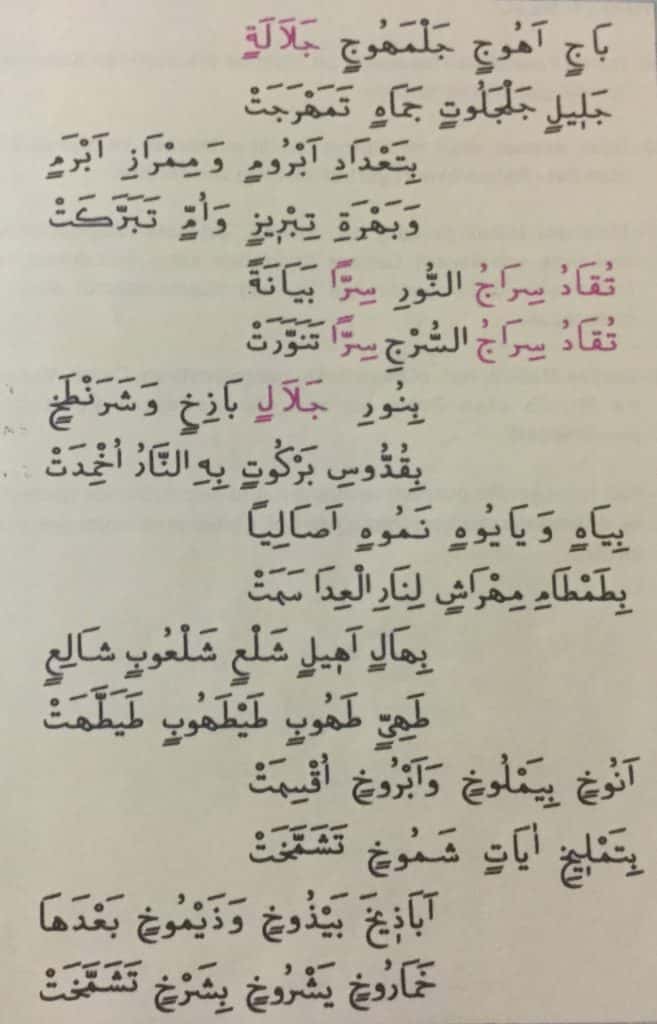 بَاجٍ اَهُوجٍ جَلْمَهُوجٍ جَلَالَةٍ
جَلِيلٍ جَلْجَلُوتٍ جَمَاهٍ تَمَهْرَجَتْ
بِتَعْدَادِ اَبْرُومٍ وَمِمْرَازِ اَبْرَمٍ
وَبَهْرَةِ تِبْرِيزٍ وَاُمٍّ تَبَرَّكَتْ
تُقَادُ سِرَاجُ النُّورِ سِرًّا بَيَانَةً
تُقَادُ سِرَاجُ السُّرْجِ سِرًّا تَنَوَّرَتْ
بِنُورِ جَلَالٍ بَازِخٍ وَشَرَنْطَخٍ
بِقُدُّوسِ بَرْكُوتٍ بِهِ النَّارُ اُخْمِدَتْ
بِيَاهٍ وَيَايُوهٍ نَمُوهٍ اَصَالِيًا
بِطَمْطَامِ مِهْرَاشٍ لِنَارِ الْعِدَا سَمَتْ
بِهَالٍ اَهِيلٍ شَلْعٍ شَلْعُوبٍ شَالِعٍ
طَهِيٍّ طَهُوبٍ طَيْطَهُوبٍ طَيَطَّهَتْ
اَنُوخٍ بِيَمْلُوخٍ وَاَبْرُوخٍ اُقْسِمَتْ
بِتَمْلِيخِ اٰيَاتٍ شَمُوخٍ تَشَمَّخَتْ
اَبَاذِيخَ بَيْذُوخٍ وَذَيْمُوخٍ بَعْدَهَا
خَمَارُوخٍ يَشْرُوخٍ بِشَرْخٍ تَشَمَّخَتْ